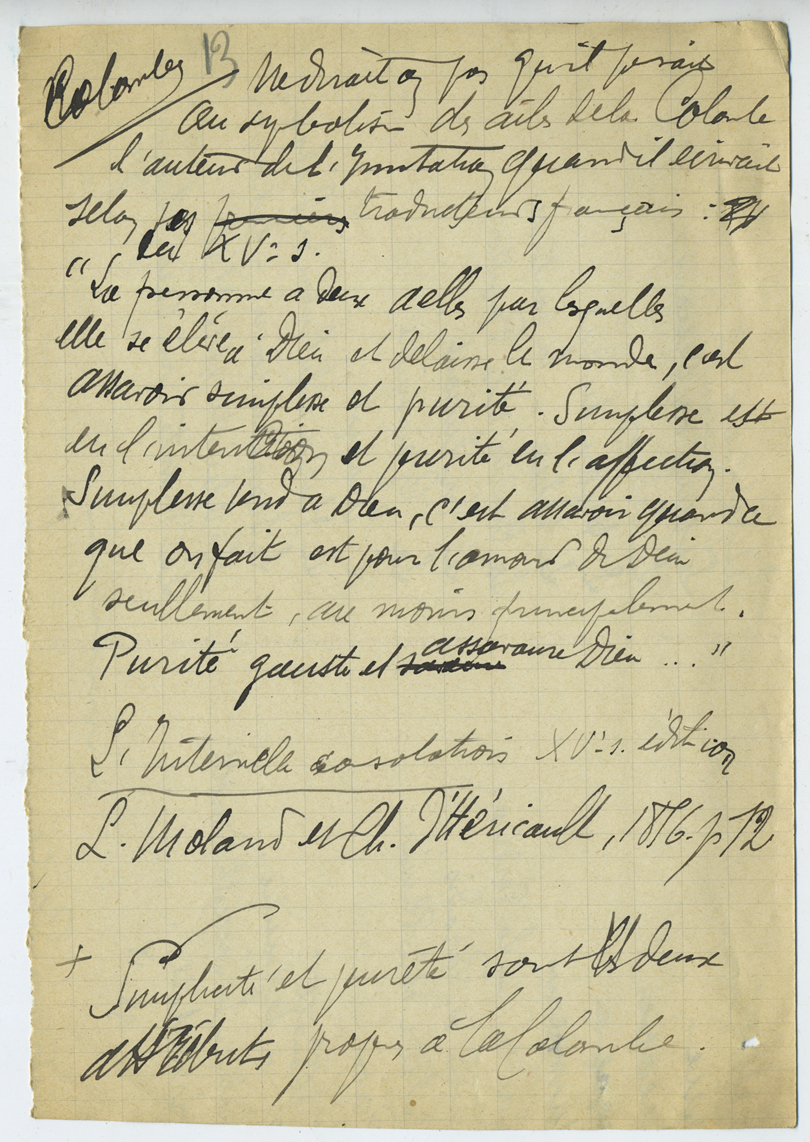 Colombe 13
Ne dirait on pas qu'il pensait
au symbolisme des ailes de la Colombe
l'auteur de l'Imitation quand il écrivait
selon ses premiers traducteurs français :
du XVe s.
"La personne a deux aelles par lesquelles
elle se élève à Dieu et délaisse le monde, c'est
assavoir simplesse et purité. Simplesse est
en l'intention et purité en l'affection.
Simplesse tend a Dieu, c'est assavoir quand ce
que on fait est pour l'amour de Dieu
seullement, au moins principalement.
Purité gouste et assavoure Dieu ... "
L'Internelle consolation XVe s. édition
L. Moland et Ch. d'Héricault, 1856. p 72
+ Simplicité et pureté sont les deux
attributs propres à la Colombe.